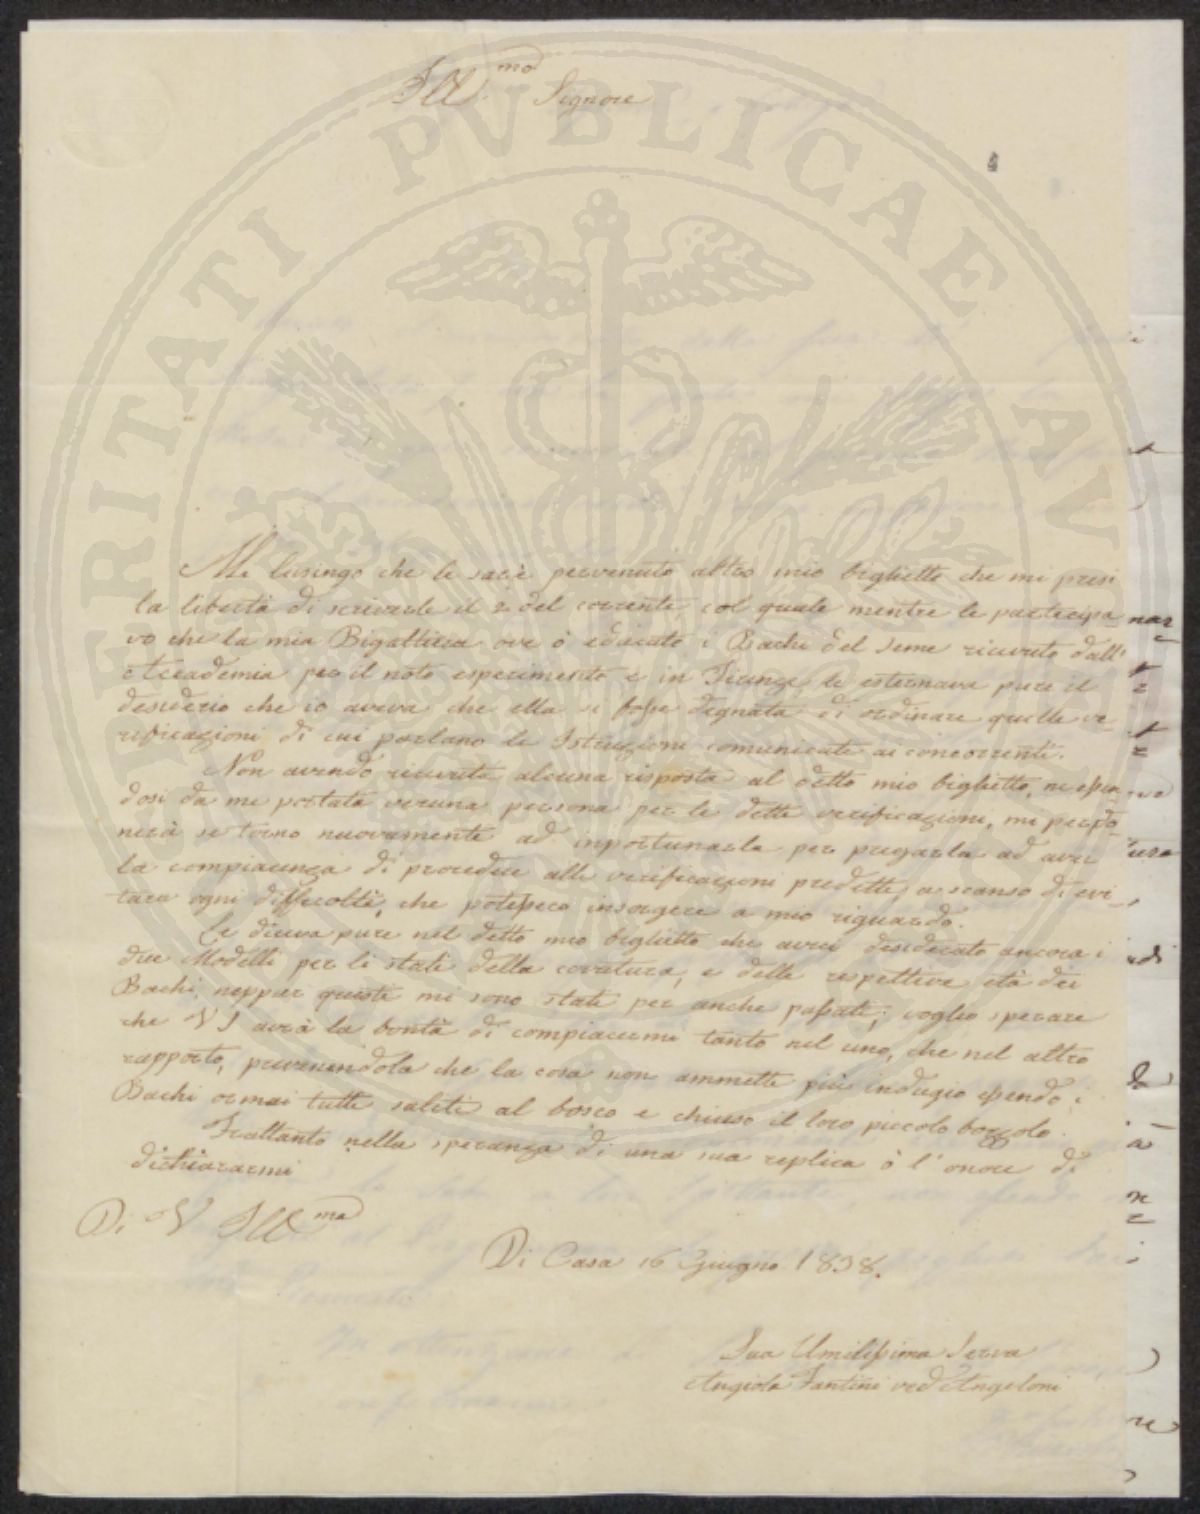 Ill.mo Signore
Mi lusingo che le sarà pervenuto altro mio biglietto che mi presi
la libertà di scriverle il 2 del corrente, col quale mentre le partecipa
vo che la mia Bigattiera ove ò educato i Bachi del seme ricevuto dall'
Accademia per il noto esperimento è in Firenze, le esternava pure il
desiderio che io aveva che ella si fosse degnata di ordinare quelle ve
rificazioni di cui parlano le Istruzioni comunicate ai concorrenti.
Non avendo ricevuta alcuna risposta al detto mio biglietto, ne essen
dosi da me portata veruna persona per le dette verificazioni, mi perdo
nerà se torno nuovamente ad inportunarla per pregarla ad aver
la compiacenza di procedere alle verificazioni predette, a scanso di evi
tare ogni difficoltà, che potessero insorgere a mio riguardo.
Le diceva pure nel detto mio biglietto che avrei desiderato ancora i
due Modelli per li stati della covatura, e delle respettive età dei
Bachi, neppur questi mi sono stati per anche passati; voglio sperare
che VS avrà la bontà di compiacermi tanto nel uno, che nel altro
rapporto, prevenendola che la cosa non ammette più indugio essendo i
Bachi ormai tutti saliti al bosco e chiuso il loro piccolo bozzolo.
Frattanto nella speranza di una sua replica ò l'onore di
dichiararmi
Di V Ill ma
Di Casa 16 Giugno 1838.
Sua Umilissima Serva
Angiola Fantini ved Angeloni
PROSPERITATI PUBLICAE AU